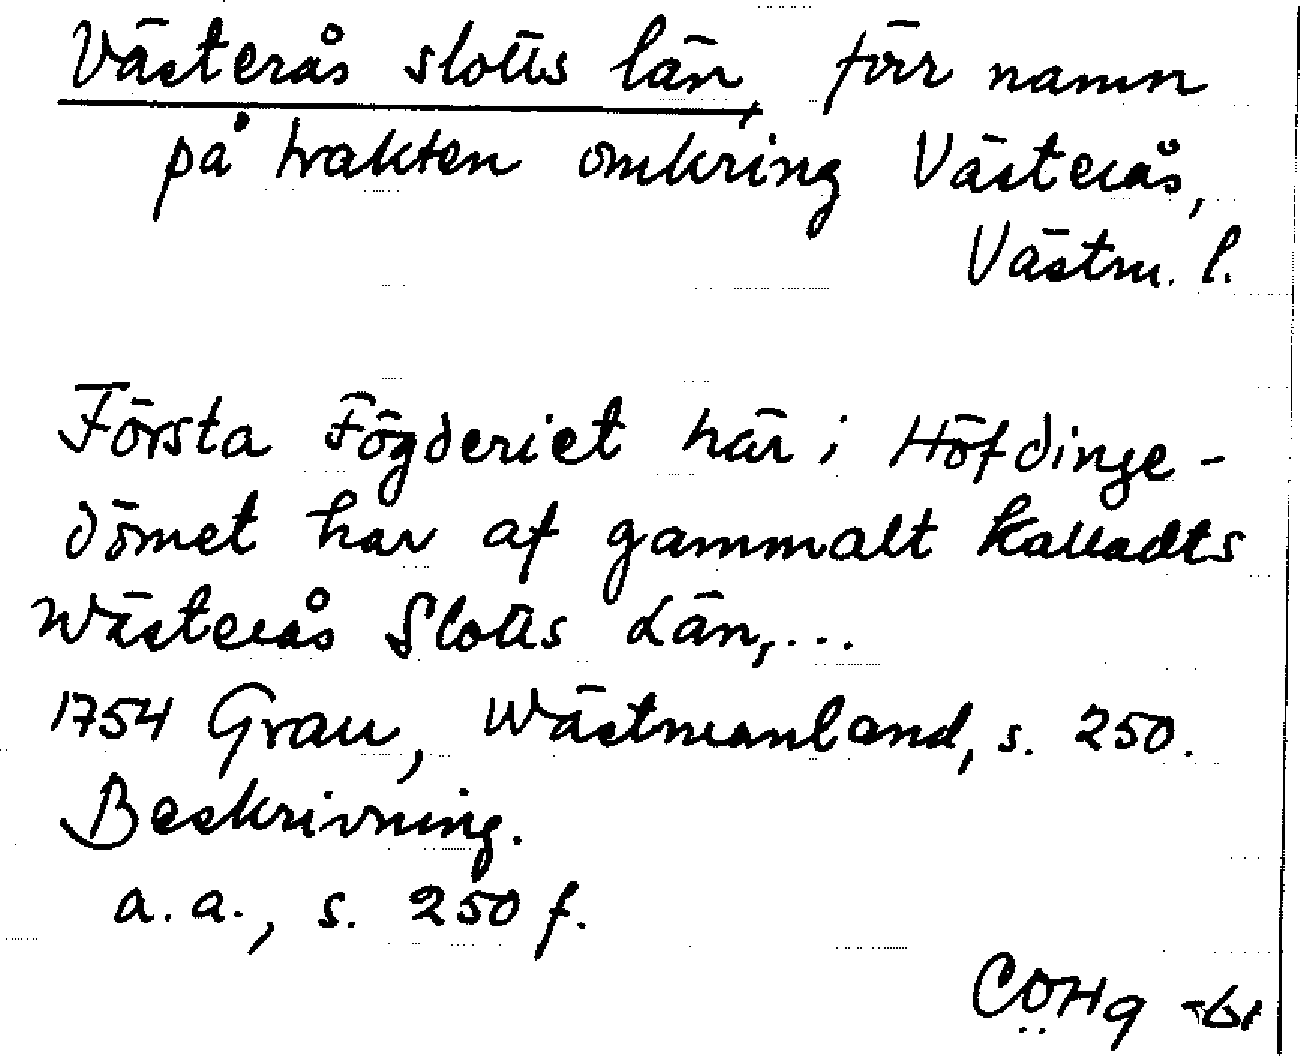 Västerås slotts län, förr namn
på trakten omkring Västerås,
Västm. l.
Första Fögderiet här i Höfdinge-
dömet har af gammalt kalladts
Wästerås Slotts Län,...
1754 Grau, Wästmanland, s. 250.
Beskrivning.
a.a., s. 250 f.
CÖHg -61